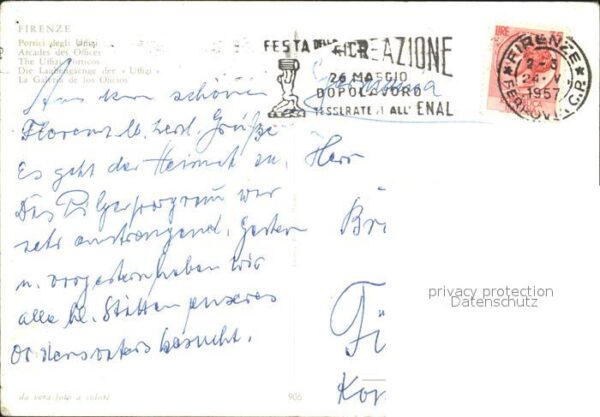 FIRENZE
Portici degli Uffizi
Arcades des Offices
The Uffizi Porticos
Die Laubengaenge der «Uffizi»
La Galeria de los Oficios
FESTA DELLA RICREAZIONE
26 MAGGIO
DOPOLAVORO
TESSERATEVI ALL' ENAL
LIRE
FIRENZE
24·V
1957
FERROVIA C.P.
Aus dem schönen
Florenz le. herzl. Grüße
Es geht der Heimat zu.
Das Pilgerprogram war
sehr anstrengend, gestern
u. vorgestern haben wir
alle hl. Stätten unseres
Ordensvaters besucht.
Herr
privacy protection
Datenschutz
da vera foto a colori
906